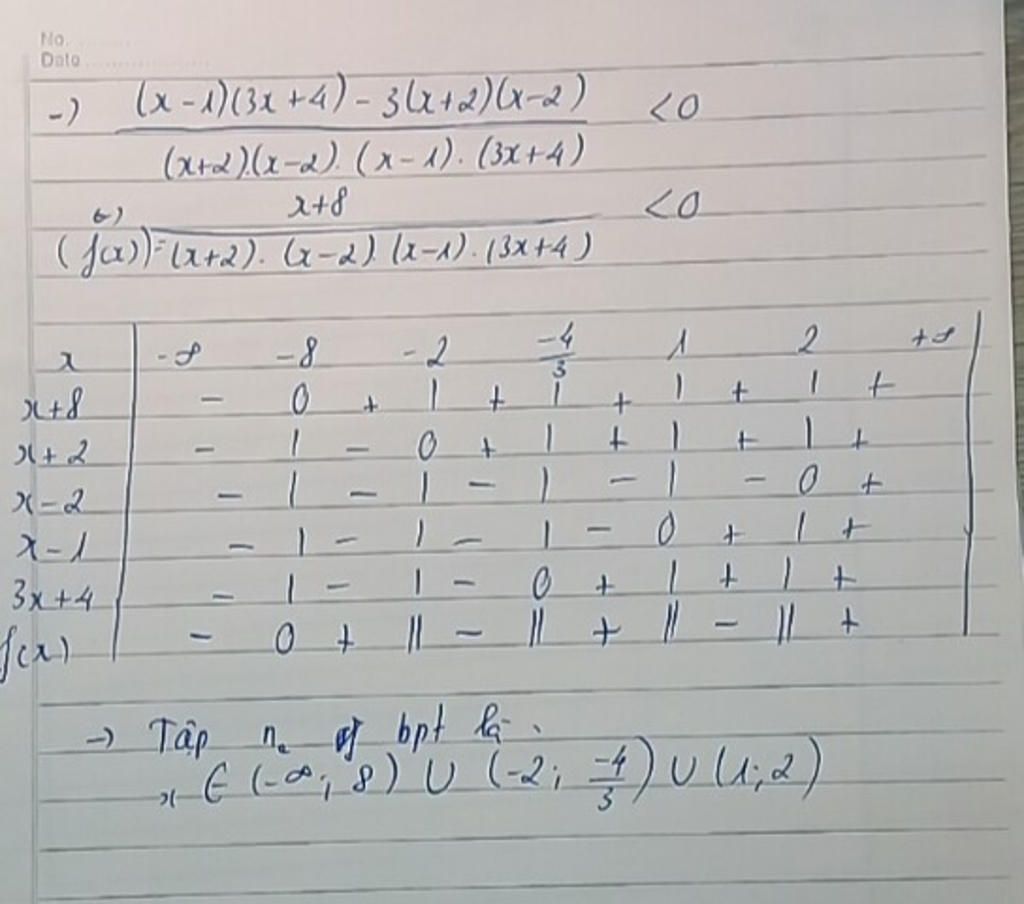 No. ............
Date ....................
-) (x - 1)(3x + 4) - 3(x+2)(x-2) < 0
(x+2).(x-2). (x - 1). (3x+4)
x+8 < 0
(f(x)) = (x+2). (x-2). (x-1). (3x+4)
x -∞ -8 -2 -4/3 1 2 +∞
x+8 - 0 + | + | + | + | +
x+2 - | - 0 + | + | + | +
x-2 - | - | - | - | - 0 +
x-1 - | - | - | - 0 + | +
3x+4 - | - | - 0 + | + | +
f(x) - 0 + || - || + || - || +
→ Tập n. bpt là.
x ∈ (-∞; 8) ∪ (-2; -4/3) ∪ (1; 2)